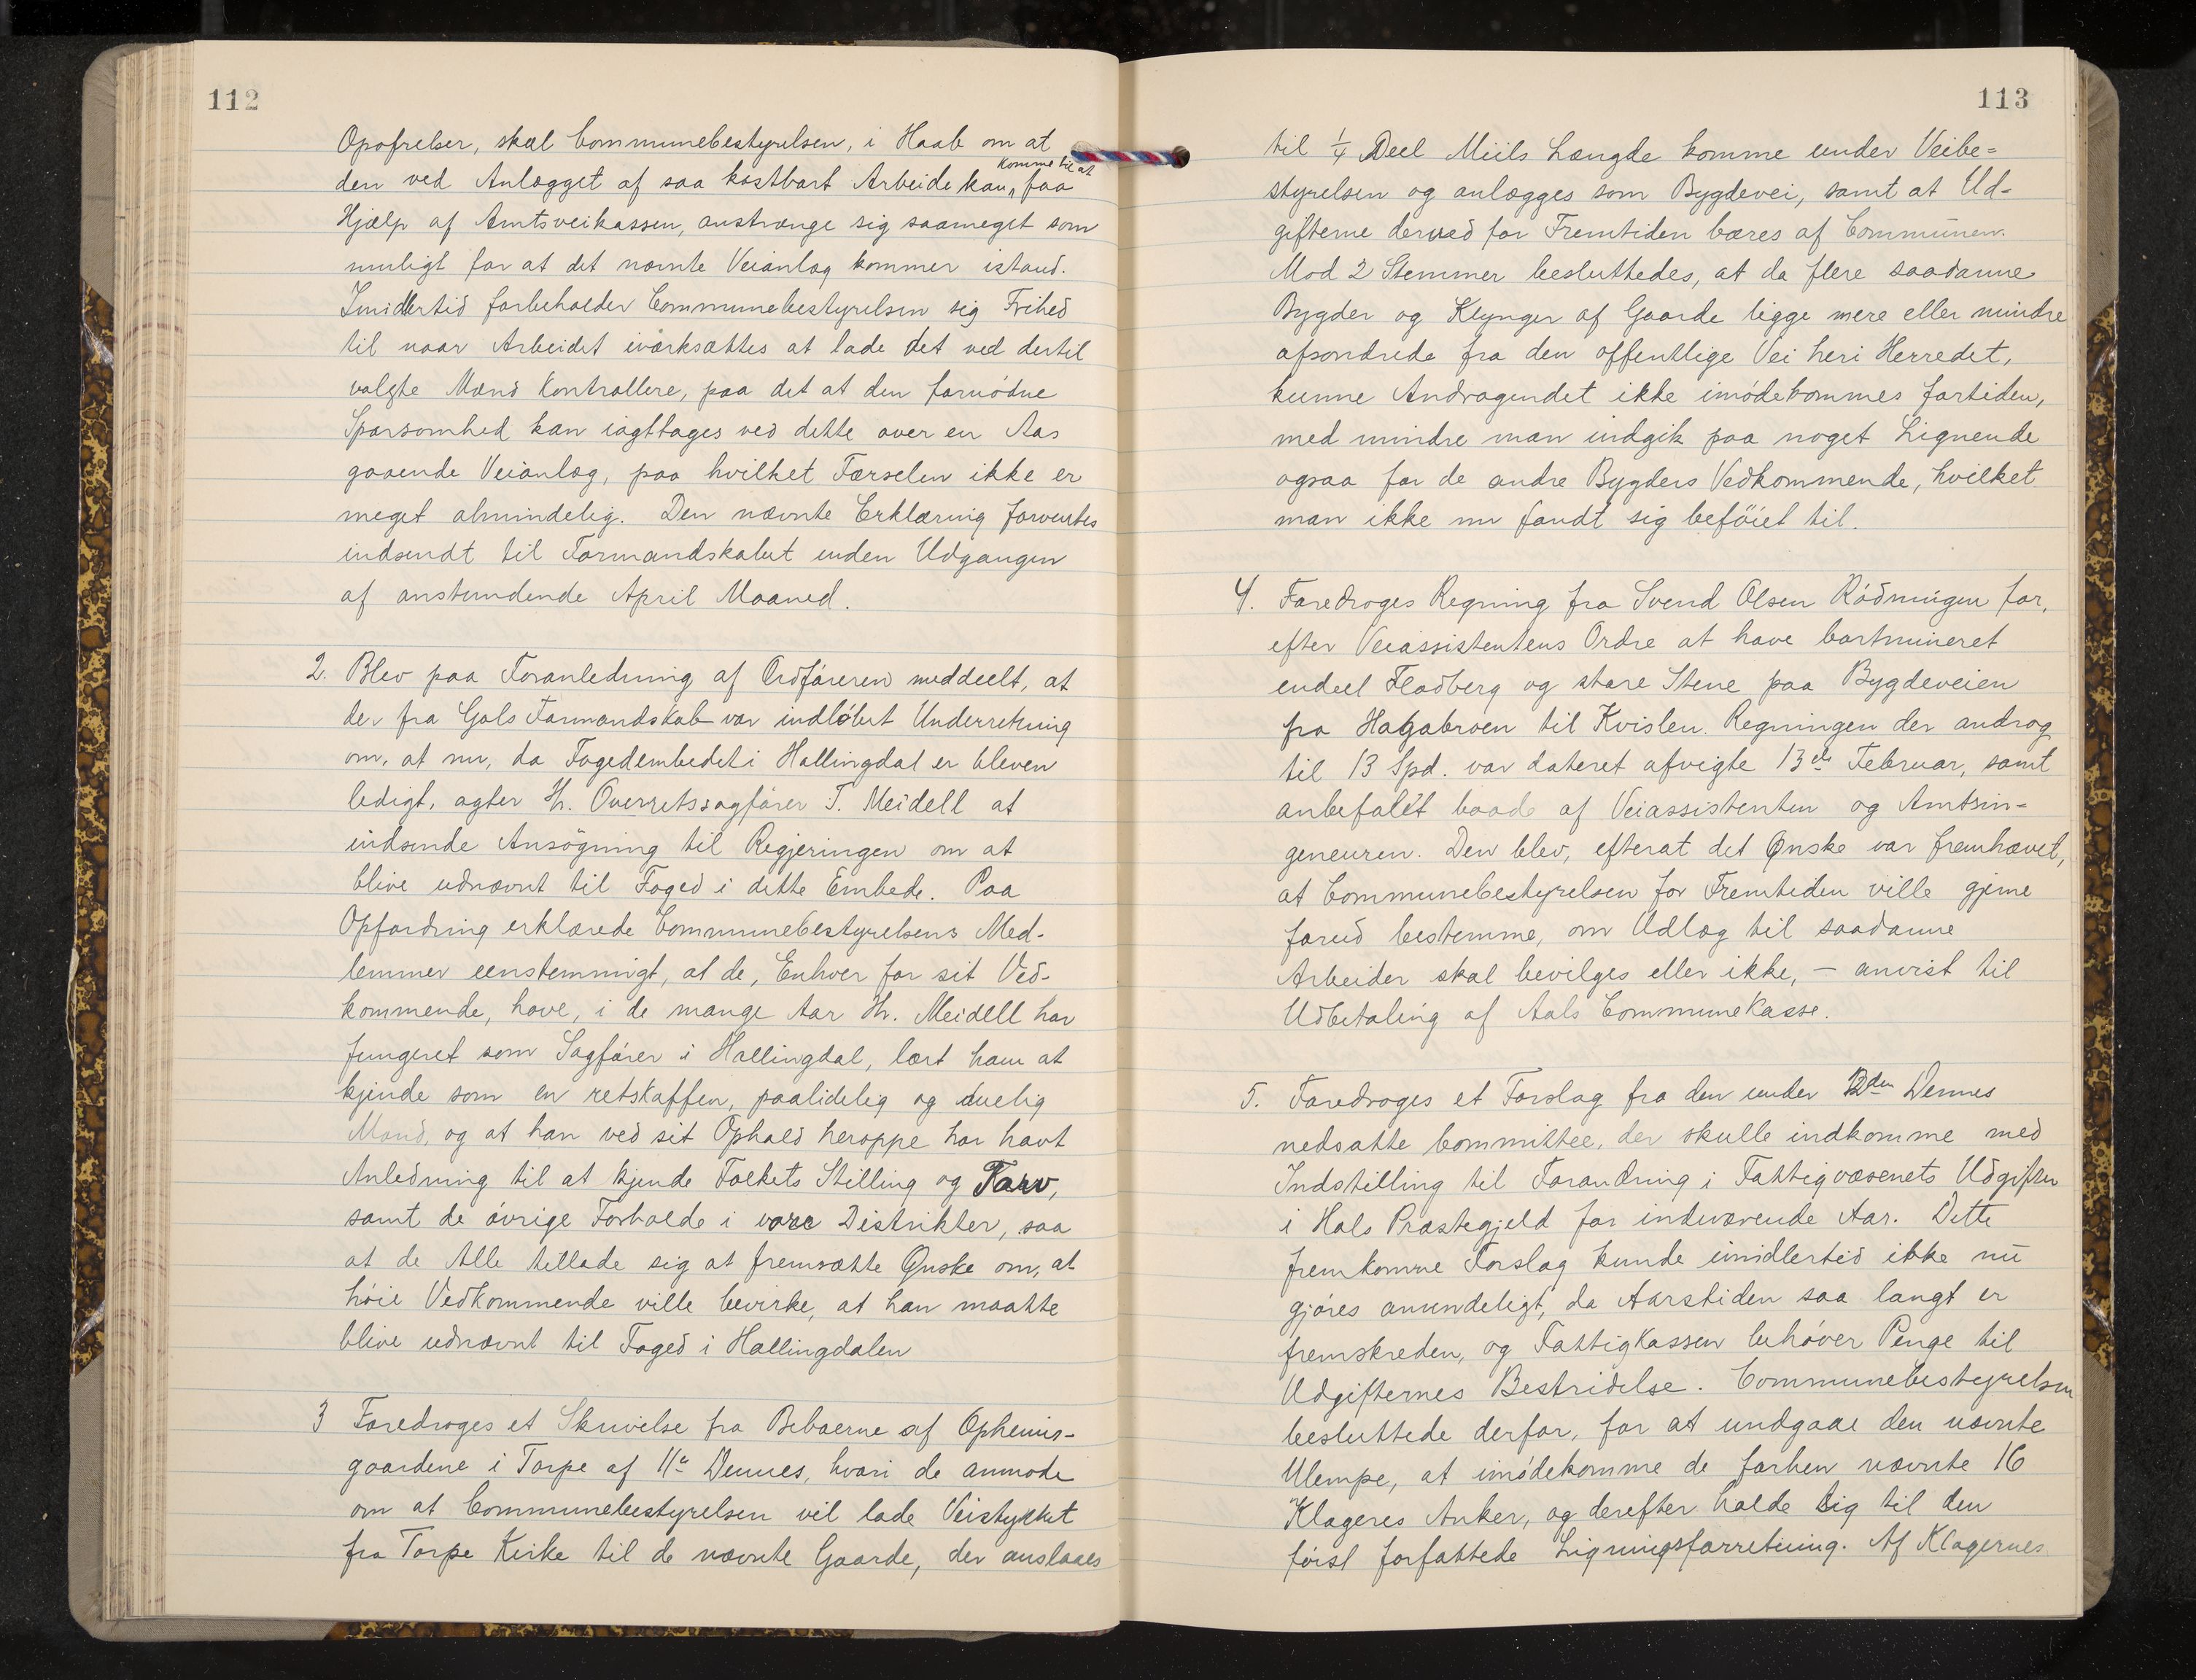 112
Opofrelser, skal Communebestyrelsen, i Haab om at
komme til at
den ved Anlægget af saa kostbart Arbeide kan, faa
Hjælp af Amtsveikassen, anstrænge sig saameget som
muligt for at det nævnte Veianlæg kommer istand.
Imidlertid forbeholder Communebestyrelsen sig Frihed
til naar Arbeidet iværksættes at lade det ved dertil
valgte Mænd kontrollere, paa det at den fornódne
Sparsomhed kan iagttages ved dette over en Aas
gaaende Veianlæg, paa hvilket Færselen ikke er
meget almindelig. Den nævnte Erklæring forventes
indsendt til Formandskabet inden Udgangen
af anstundende April Maaned.
2. Blev paa Foranledning af Ordføreren meddeelt, at
der fra Gols Formandskab var indløbet Underretning
om, at nu, da Fogedembedet i Hallingdal er bleven
ledigt, agter Hr. Overretssagfører T. Meidell at
indsende Ansögning til Regjeringen om at
blive udnævnt til Foged i dette Embede. Paa
Opfordring erklærede Communebestyrelsens Med-
lemmer eenstemmigt, at de, Enhver for sit Ved-
kommende, have, i de mange Aar Hr. Meidell har
fungeret som Sagfører i Hallingdal, lært ham at
kjende som en retskaffen, paalidelig og duelig
Mand, og at han ved sit Ophold heroppe har havt
Anledning til at kjende Folkets Stilling og Tarv,
samt de övrige Forholde i vore Distrikter, saa
at de Alle tillade sig at fremsætte Ønske om, at
höie Vedkommende ville bevirke, at han maatte
blive udnævnt til Foged i Hallingdalen
3 Foredroges et Skrivelse fra Beboerne af Opheims-
gaardene i Torpe af 11te Dennes, hvori de anmode
om at Communebestyrelsen vil lade Veistykket
fra Torpe Kirke til de nævnte Gaarde, der anslaaes
113
til 1/4 Deel Miils Længde komme under Veibe=
styrelsen og anlægges som Bygdevei, samt at Ud-
gifterne derved for Fremtiden bæres af Communen.
Mod 2 Stemmer besluttedes, at da flere saadanne
Bygder og Klynger af Gaarde ligge mere eller mindre
afsondrede fra den offentlige Vei heri Herredet,
kunne Andragendet ikke imødekommes fortiden,
med mindre man indgik paa noget Lignende
ogsaa for de andre Bygders Vedkommende, hvilket
man ikke nu fandt sig beföiet til.
4. Foredroges Regning fra Svend Olsen Rödningen for,
efter Veiassistentens Ordre at have bortmineret
endeel Fladberg og store Stene paa Bygdeveien
fra Hagabroen til Kvislen. Regningen der androg
til 13 Spd. var dateret afvigte 13de Februar, samt
anbefalet baade af Veiassistenten og Amtsin=
geneuren. Den blev, efterat det Ønske var fremhævet,
at Communebestyrelsen for Fremtiden ville gjerne
forud bestemme, om Udlæg til saadanne
Arbeider skal bevilges eller ikke, – anvist til
Udbetaling af Aals Communekasse.
5. Foredroges et Forslag fra den under 12den Dennes
nedsatte Committee, der skulle indkomme med
Indstilling til Forandring i Fattigvæsenets Udgifter
i Hols Præstegjeld for indeværende Aar. Dette
fremkomne Forslag kunde imidlertid ikke nu
gjöres anvendeligt, da Aarstiden saa langt er
fremskreden, og Fattigkassen behöver Penge til
Udgifternes Bestridelse. Communebestyrelsen
besluttede derfor, for at undgaae den nævnte
Ulempe, at imödekomme de forhen nævnte 16
Klageres Anker, og derefter holde sig til den
först forfattede Ligningsforretning. Af Klagernes